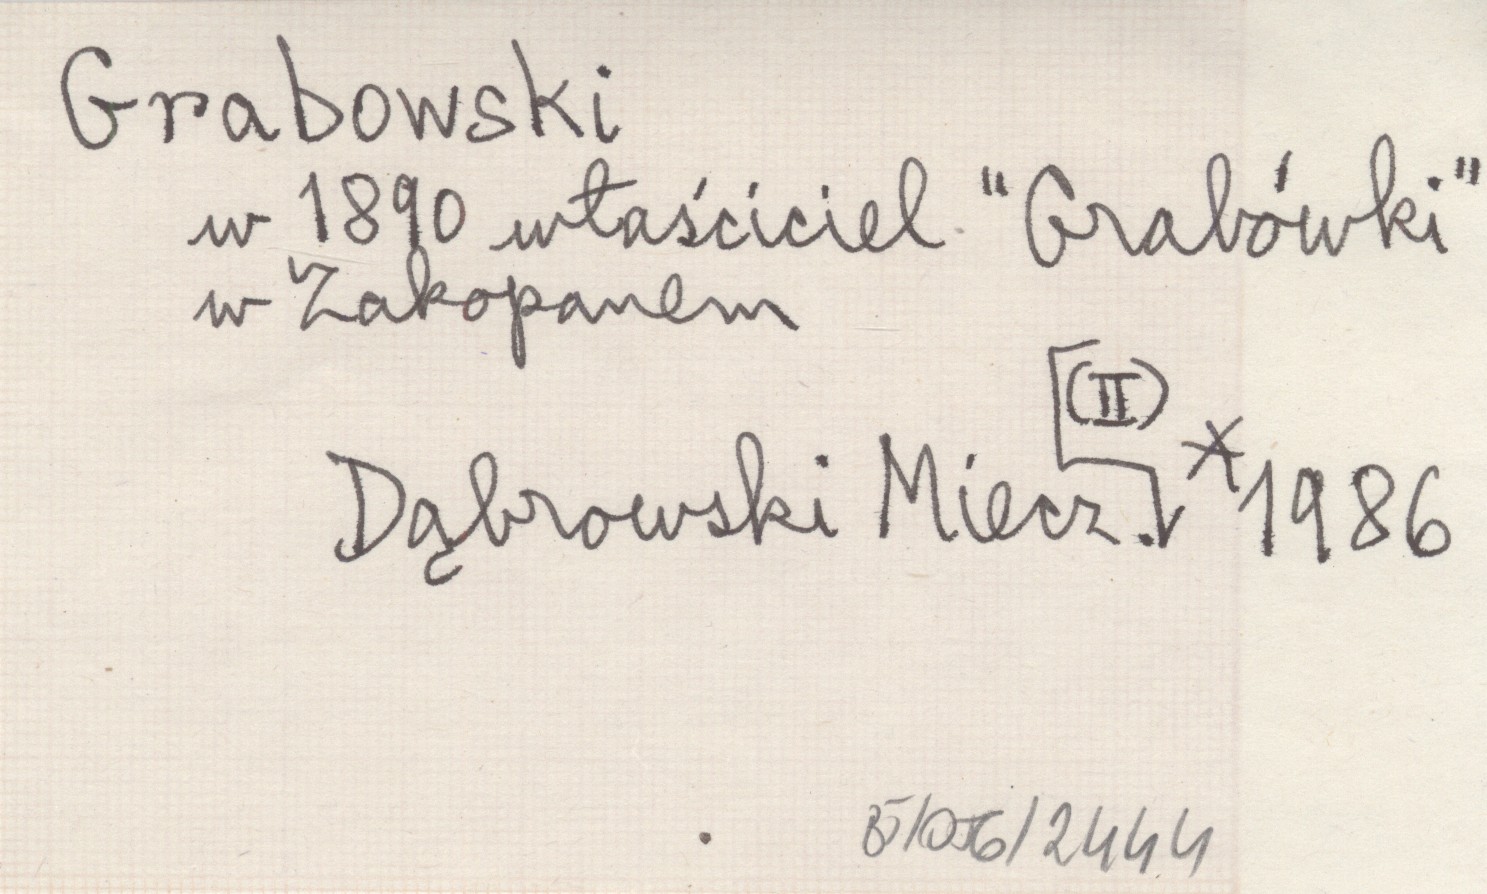 Grabowski
w 1890 właściciel "Grabówki"
w Zakopanem
(II)
Dąbrowski Miecz. * 1986
/2444